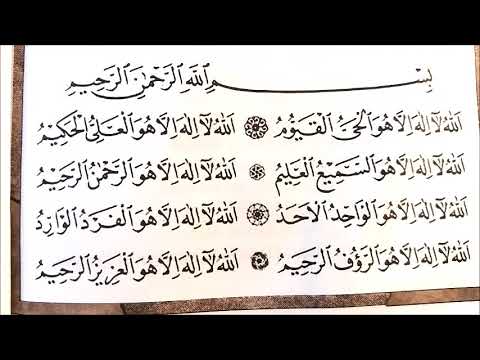 بِسْمِ اللهِ الرَّحْمٰنِ الرَّحِيمِ
اَللهُ لَآ اِلٰهَ اِلَّا هُوَ الْحَيُّ الْقَيُّومُ اَللهُ لَآ اِلٰهَ اِلَّا هُوَ الْعَلِيُّ الْحَكِيمُ
اَللهُ لَآ اِلٰهَ اِلَّا هُوَ السَّمِيعُ الْعَلِيمُ اَللهُ لَآ اِلٰهَ اِلَّا هُوَ الرَّحْمٰنُ الرَّحِيمُ
اَللهُ لَآ اِلٰهَ اِلَّا هُوَ الْوَاحِدُ الْاَحَدُ اَللهُ لَآ اِلٰهَ اِلَّا هُوَ الْفَرْدُ
اَللهُ لَآ اِلٰهَ اِلَّا هُوَ الرَّؤُفُ الرَّحِيمُ اَللهُ لَآ اِلٰهَ اِلَّا هُوَ الْعَزِيزُ الرَّحِيمُ